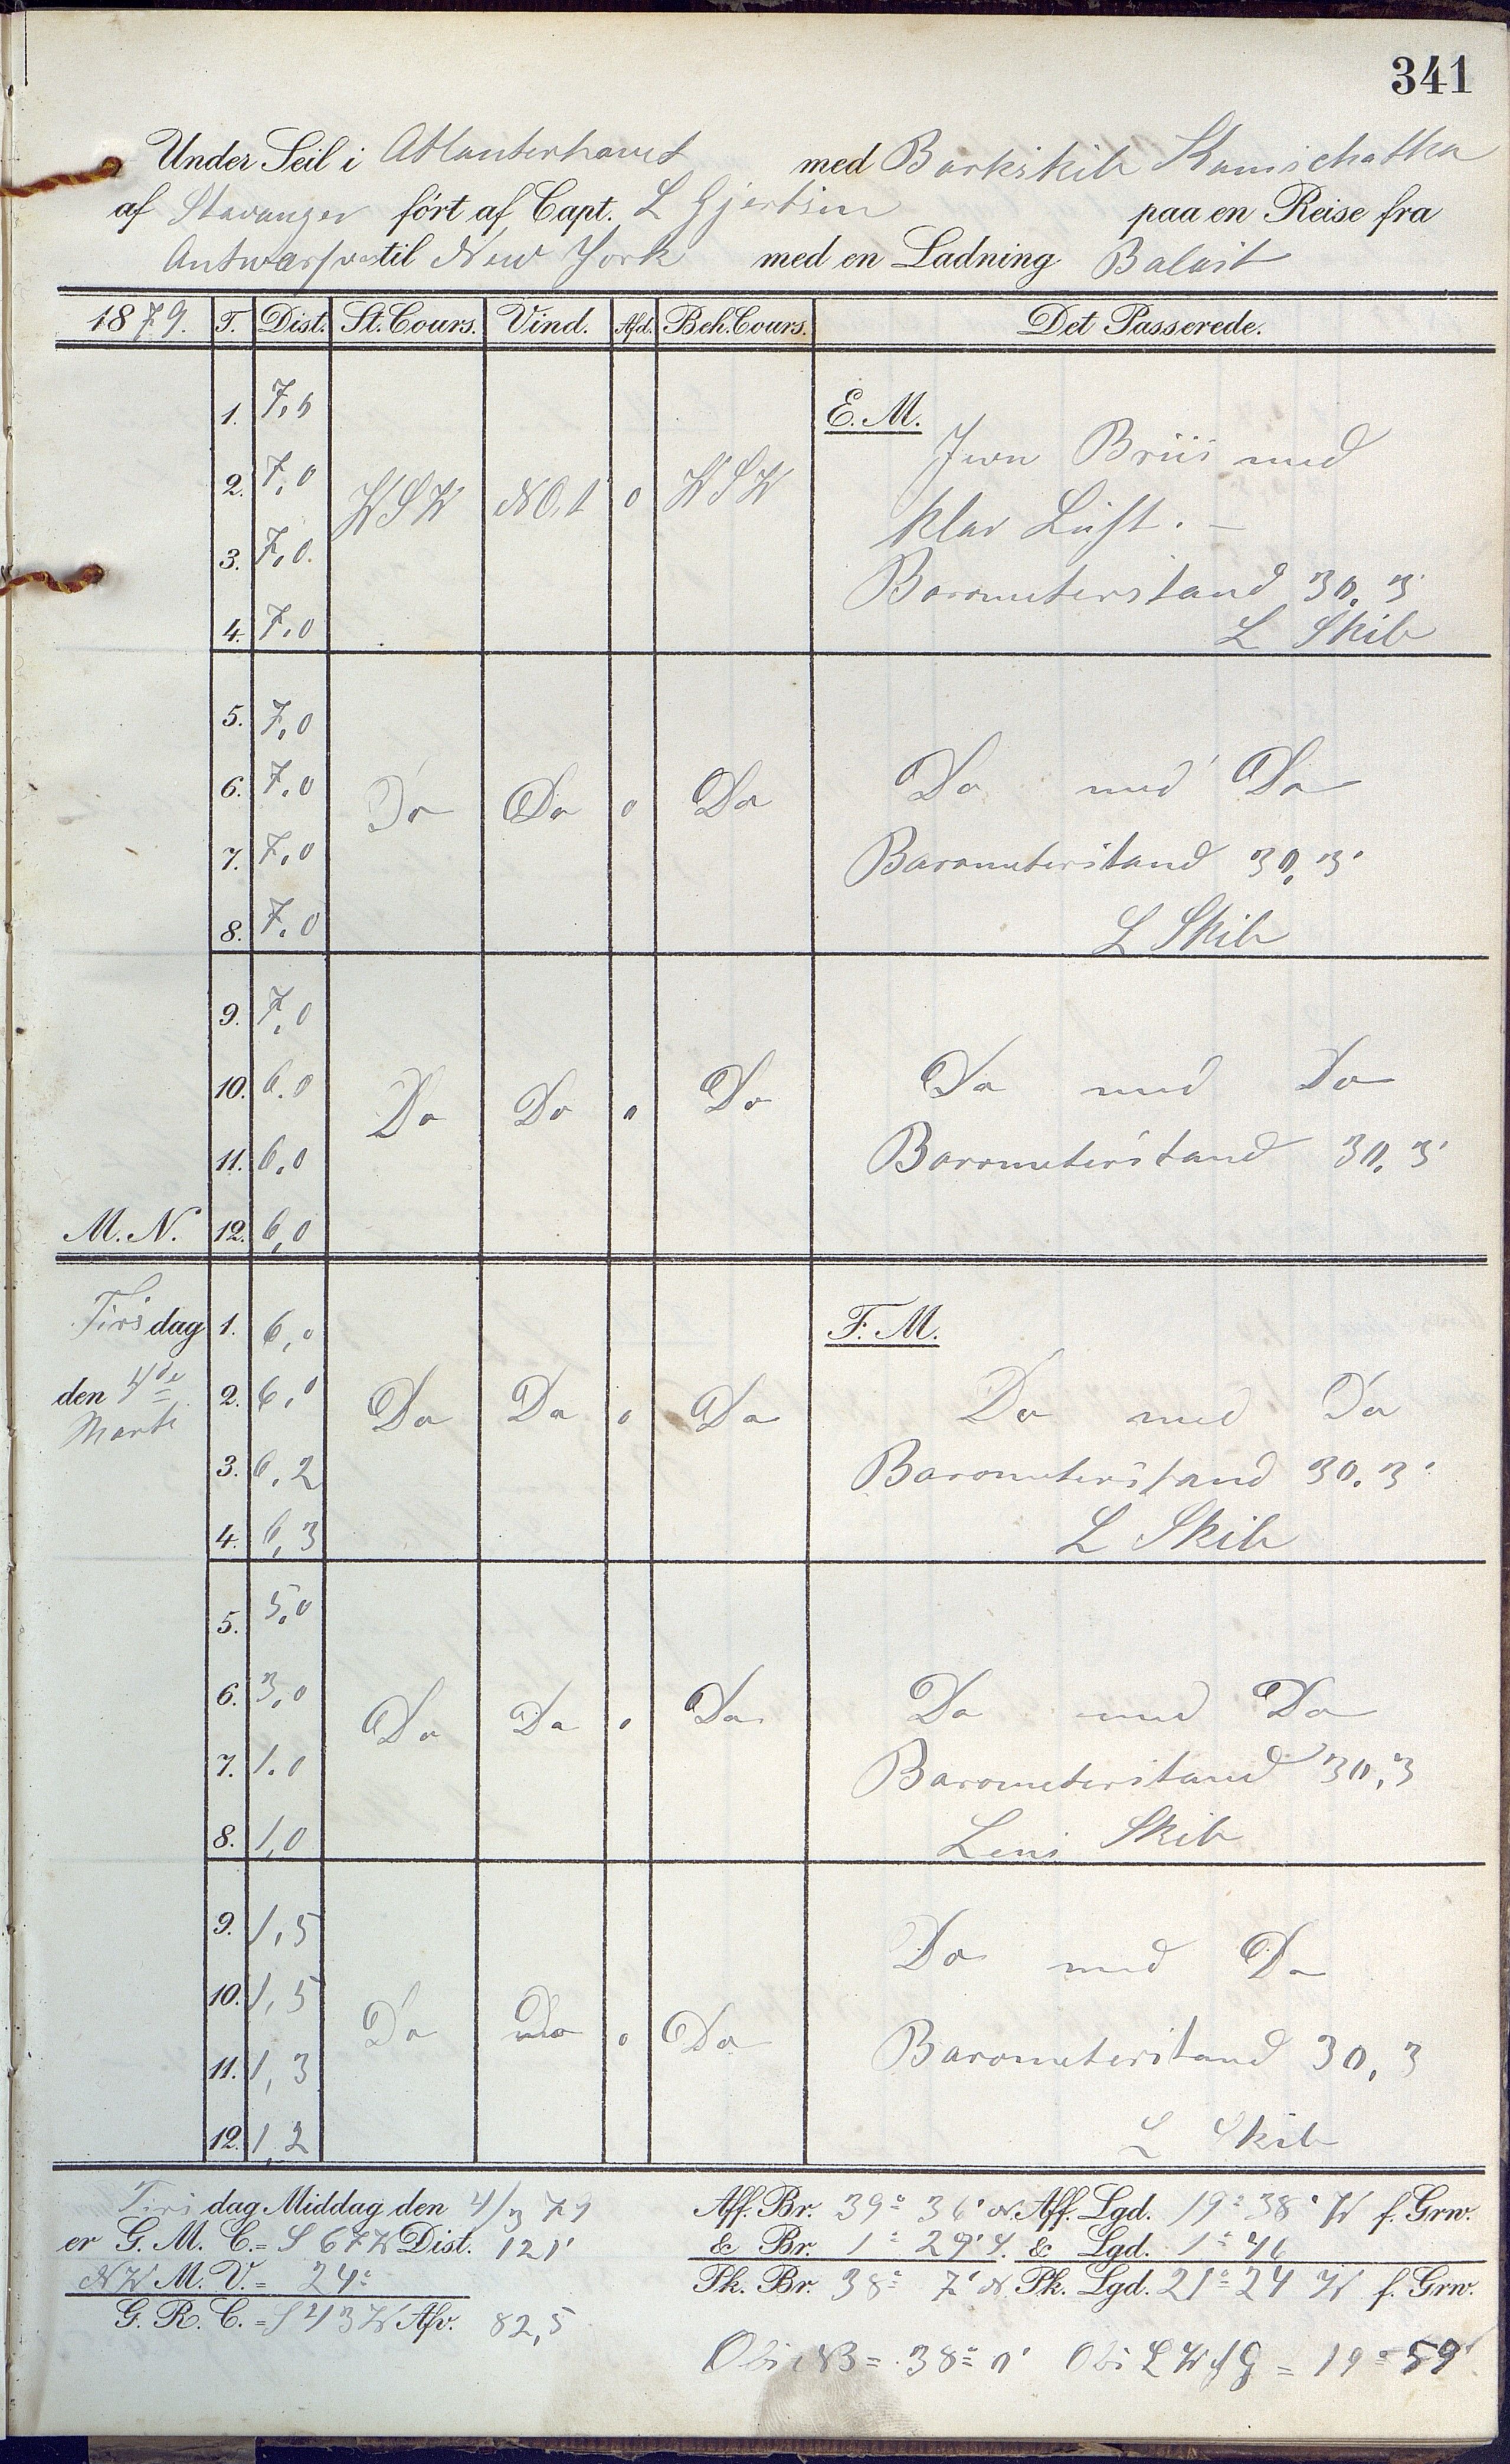 341
Under Seil i Atlanterhavet med Barkskib Kamschatka
af Stavanger ført af Capt. L Gjertsen paa en Reise fra
Antwerpen til New York med en Ladning Balast
1879. T. Dist. St. Cours. Vind. Afd. Beh. Cours. Det Passerede.
1. 7,5 E. M.
Jevn Briis med
2. 7,0 WSW NO.t 0 WSW
klar Luft. —
3. 7,0.
Barometerstand 30,3
4. 7,0 L Skib
5. 7,0
6. 7,0 Do Do 0 Do Do med Do
7. 7,0 Barometerstand 30,3
8. 7,0 L Skib
9. 7,0
10. 6.0 Do Do 0 Do Do med Do
11. 6,0 Barometerstand 30,3
M. N. 12. 6,0
Tirsdag 1. 6,0 F. M.
den 4de 2. 6,0 Do Do 0 Do Do med Do
Marts
3. 6,2 Barometerstand 30,3
4. 6,3 L Skib
5. 5,0
6. 3,0 Do Do 0 Do Do med Do
7. 1.0 Barometerstand 30,3
8. 1,0 Lens Skib
9. 1,5 Do med Do
10. 1,5 Do Do 0 Do
11. 1,3 Barometerstand 30,3
12. 1,2 L Skib
Tirsdag Middag den 4/3 79 Aff. Br. 39° 36' N. Aff. Lgd. 19° 38' W f. Grw.
er G. M. C. = S 67 W Dist. 121' & Br. 1° 29' S. & Lgd. 1° 46
NW M. V. = 24° Pk. Br. 38° 7' N Pk. Lgd. 21° 24 W f. Grw.
G. R. C. = S 43 W Afv. 82,5
Obs NB = 38° 0' Obs L W f G = 19° 59'